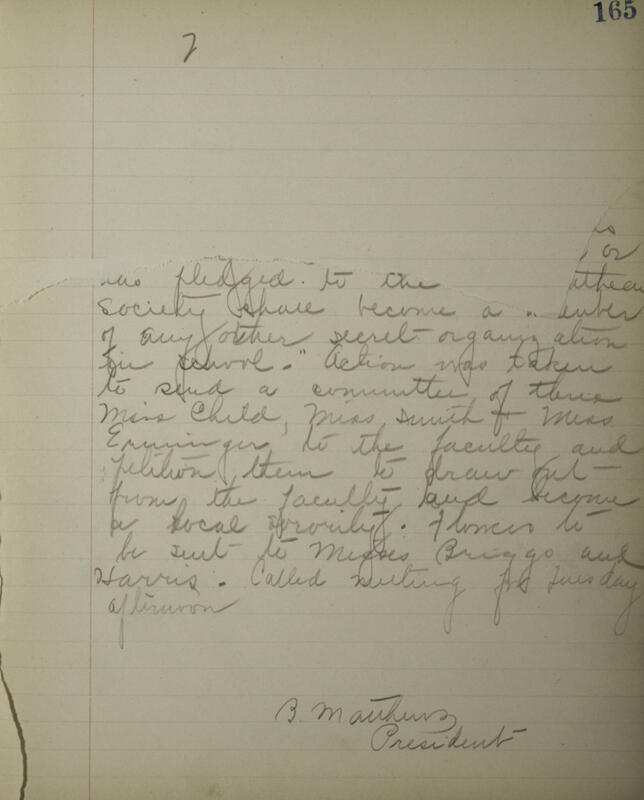 165
2
or
has pledged to the
Society shall become a
of any other secret organization
in school." Action was taken
to send a committee of three
Miss Child, Miss Smith & Miss
to the faculty and
petition them to draw out
from the faculty and become
a local sorority. Flowers to
be sent to Misses Briggs and
Harris. Called meeting for Tuesday
afternoon
B. Matthews
President